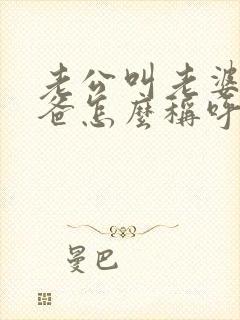 老公叫老婆
爸怎麼稱呼
曼巴